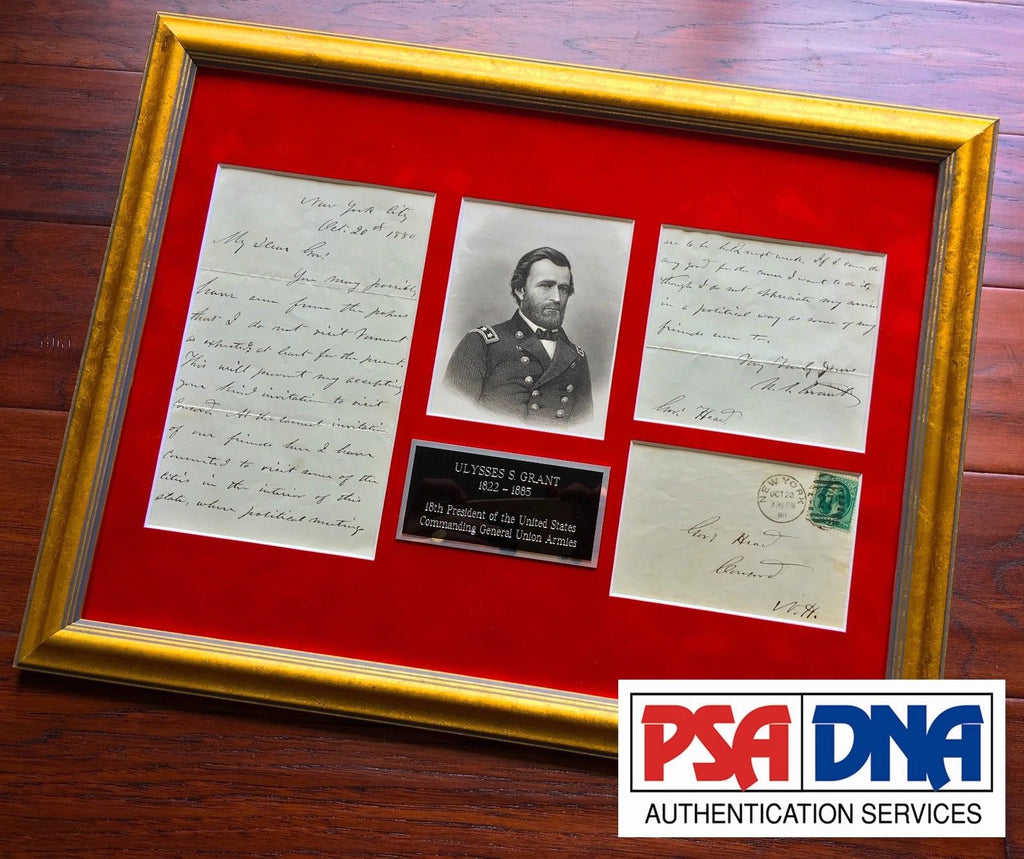 New York City
Oct. 20th 1880
My Dear Gov.
You may possibly
have seen from the papers
that I do not visit Vermont
as expected, at least for the present.
This will prevent my accepting
your kind invitation to visit
Concord. At the earnest invitation
of our friends here I have
consented to visit some of the
cities in the interior of this
state, where political meetings
are to be held next week. If I can do
any good for the cause I want to do it,
though I do not appreciate my services
in a political way as some of my
friends seem to.
Very Truly Yours
U. S. Grant
Gov. Head
ULYSSES S. GRANT
1822 – 1885
18th President of the United States
Commanding General Union Armies
NEW YORK
OCT 20
80
Gov. Head
Concord
N.H.
PSA DNA
AUTHENTICATION SERVICES